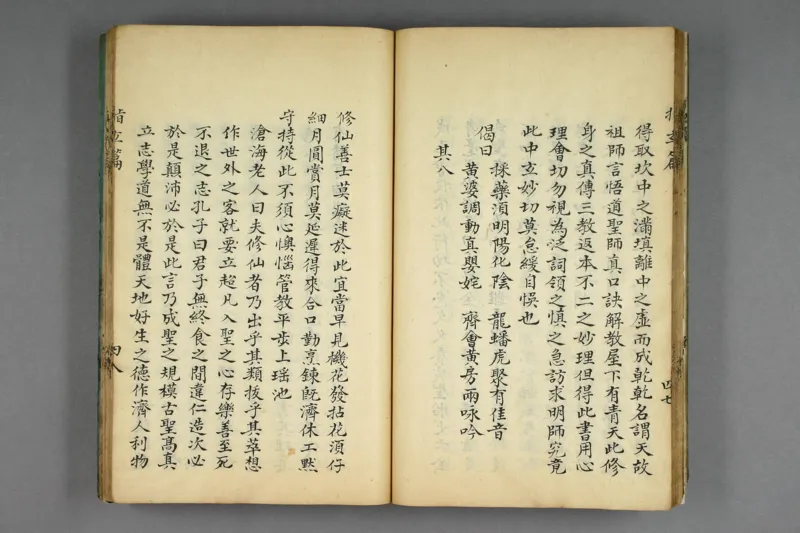 得取坎中之滿填離中之虛而成乾乾名謂天故
祖師言悟道聖師真口訣解教屋下有青天此修
身之真傳三教返本不二之妙理但得此書用心
理會切勿視為泛詞領之慎之急訪求明師究竟
此中立妙切莫怠緩自悞也
偈曰
採藥湏明陽化陰 龍蟠虎聚有佳音
黄婆調動真嬰姹 齊會黄房兩咏吟
其八
四七
修仙善士莫癡迷於此宜當早見機花發拈花湏仔
細月圓賞月莫延遲得來合口勤烹鍊旣濟休工黙
守持從此不須心懊惱管教平步上瑶池
滄海老人曰夫修仙者乃出乎其類拔乎其萃想
作世外之客就要立超凡入聖之心存樂善至死
不退之志孔子曰君子無終食之間違仁造次必
於是顛沛必於是此言乃成聖之規模古聖高真
立志學道無不是體天地好生之德作濟人利物
指立篇
四八